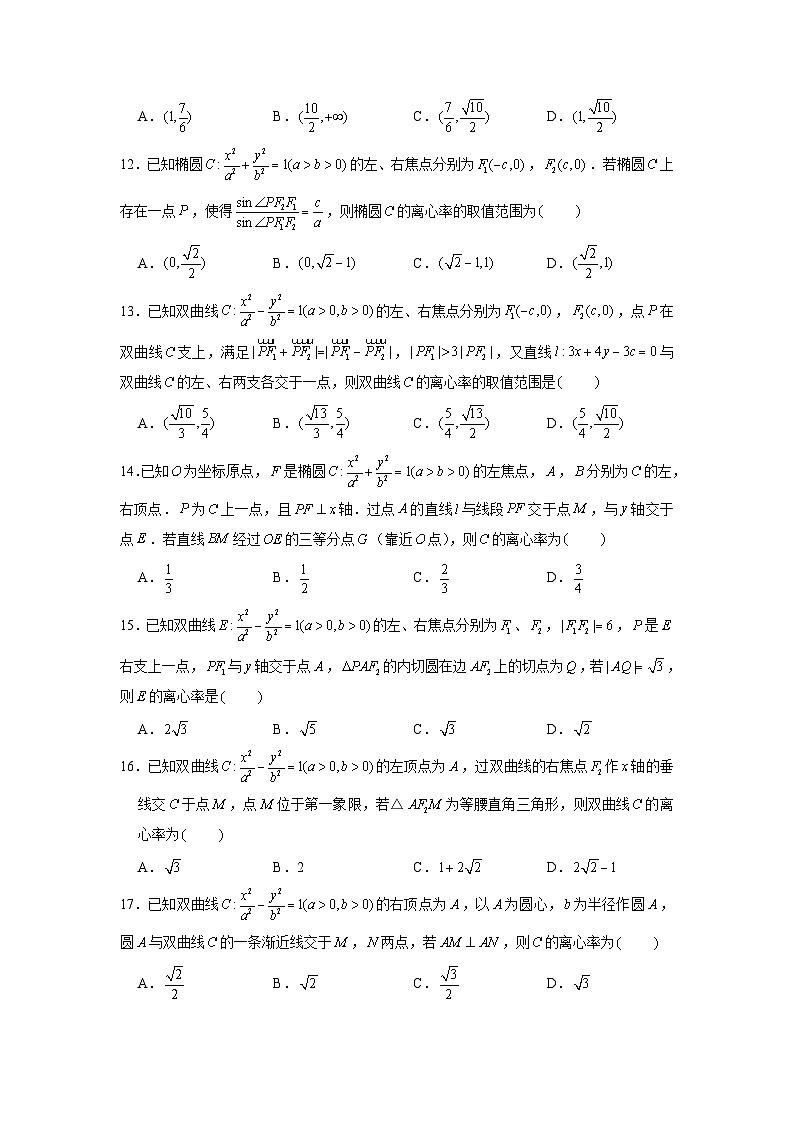 A. (1, 7/6)  B. (10/2, +∞)  C. (7/6, √10/2)  D. (1, √10/2)
12.已知椭圆 C: x²/a² + y²/b² = 1(a > b > 0) 的左、右焦点分别为 F₁(−c,0), F₂(c,0).若椭圆 C 上
存在一点 P,使得 sin∠PF₂F₁/sin∠PF₁F₂ = c/a,则椭圆 C 的离心率的取值范围为(  )
A. (0, √2/2)  B. (0, √2 − 1)  C. (√2 − 1,1)  D. (√2/2, 1)
13.已知双曲线 C: x²/a² − y²/b² = 1(a > 0, b > 0) 的左、右焦点分别为 F₁(−c,0), F₂(c,0),点 P 在
双曲线 C 支上,满足 |PF₁ + PF₂|=|PF₁ − PF₂|, |PF₁|>3|PF₂|,又直线 l:3x + 4y − 3c = 0 与
双曲线 C 的左、右两支各交于一点,则双曲线 C 的离心率的取值范围是(  )
A. (√10/3, 5/4)  B. (√13/3, 5/4)  C. (5/4, √13/2)  D. (5/4, √10/2)
14.已知 O 为坐标原点, F 是椭圆 C: x²/a² + y²/b² = 1(a > b > 0) 的左焦点, A, B 分别为 C 的左,
右顶点. P 为 C 上一点,且 PF ⊥ x 轴.过点 A 的直线 l 与线段 PF 交于点 M,与 y 轴交于
点 E.若直线 BM 经过 OE 的三等分点 G(靠近 O 点),则 C 的离心率为(  )
A. 1/3  B. 1/2  C. 2/3  D. 3/4
15.已知双曲线 E: x²/a² − y²/b² = 1(a > 0, b > 0) 的左、右焦点分别为 F₁、F₂, |F₁F₂|= 6, P 是 E
右支上一点, PF₁ 与 y 轴交于点 A, ΔPAF₂ 的内切圆在边 AF₂ 上的切点为 Q,若 |AQ|= √3,
则 E 的离心率是(  )
A. 2√3  B. √5  C. √3  D. √2
16.已知双曲线 C: x²/a² − y²/b² = 1(a > 0, b > 0) 的左顶点为 A,过双曲线的右焦点 F₂ 作 x 轴的垂
线交 C 于点 M,点 M 位于第一象限,若△ AF₂M 为等腰直角三角形,则双曲线 C 的离
心率为(  )
A. √3  B. 2  C. 1 + 2√2  D. 2√2 − 1
17.已知双曲线 C: x²/a² − y²/b² = 1(a > 0, b > 0) 的右顶点为 A,以 A 为圆心, b 为半径作圆 A,
圆 A 与双曲线 C 的一条渐近线交于 M, N 两点,若 AM ⊥ AN,则 C 的离心率为(  )
A. √2/2  B. √2  C. √3/2  D. √3